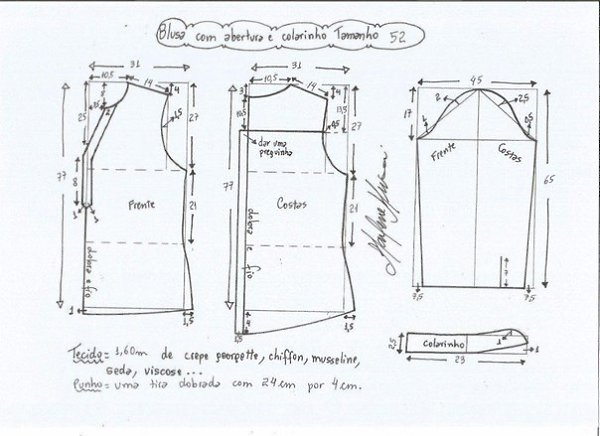 Blusa com abertura e colarinho Tamanho 52
31
10,5
14
4
8
2
1,5
25
27
77
8
21
Frente
dobra e fio
1
1,5
31
10,5
14
4
3
10,5
13,5
0,5
27
dar uma preguinha
77
21
Costas
dobra e fio
1,5
45
17
2
2,5
0,5
Frente
Costas
65
7
7,5
7,5
2,5
colarinho
1
1
23
Tecido = 1,60m de crepe georgette, chiffon, musseline,
seda, viscose...
Punho = uma tira dobrada com 24cm por 4cm.